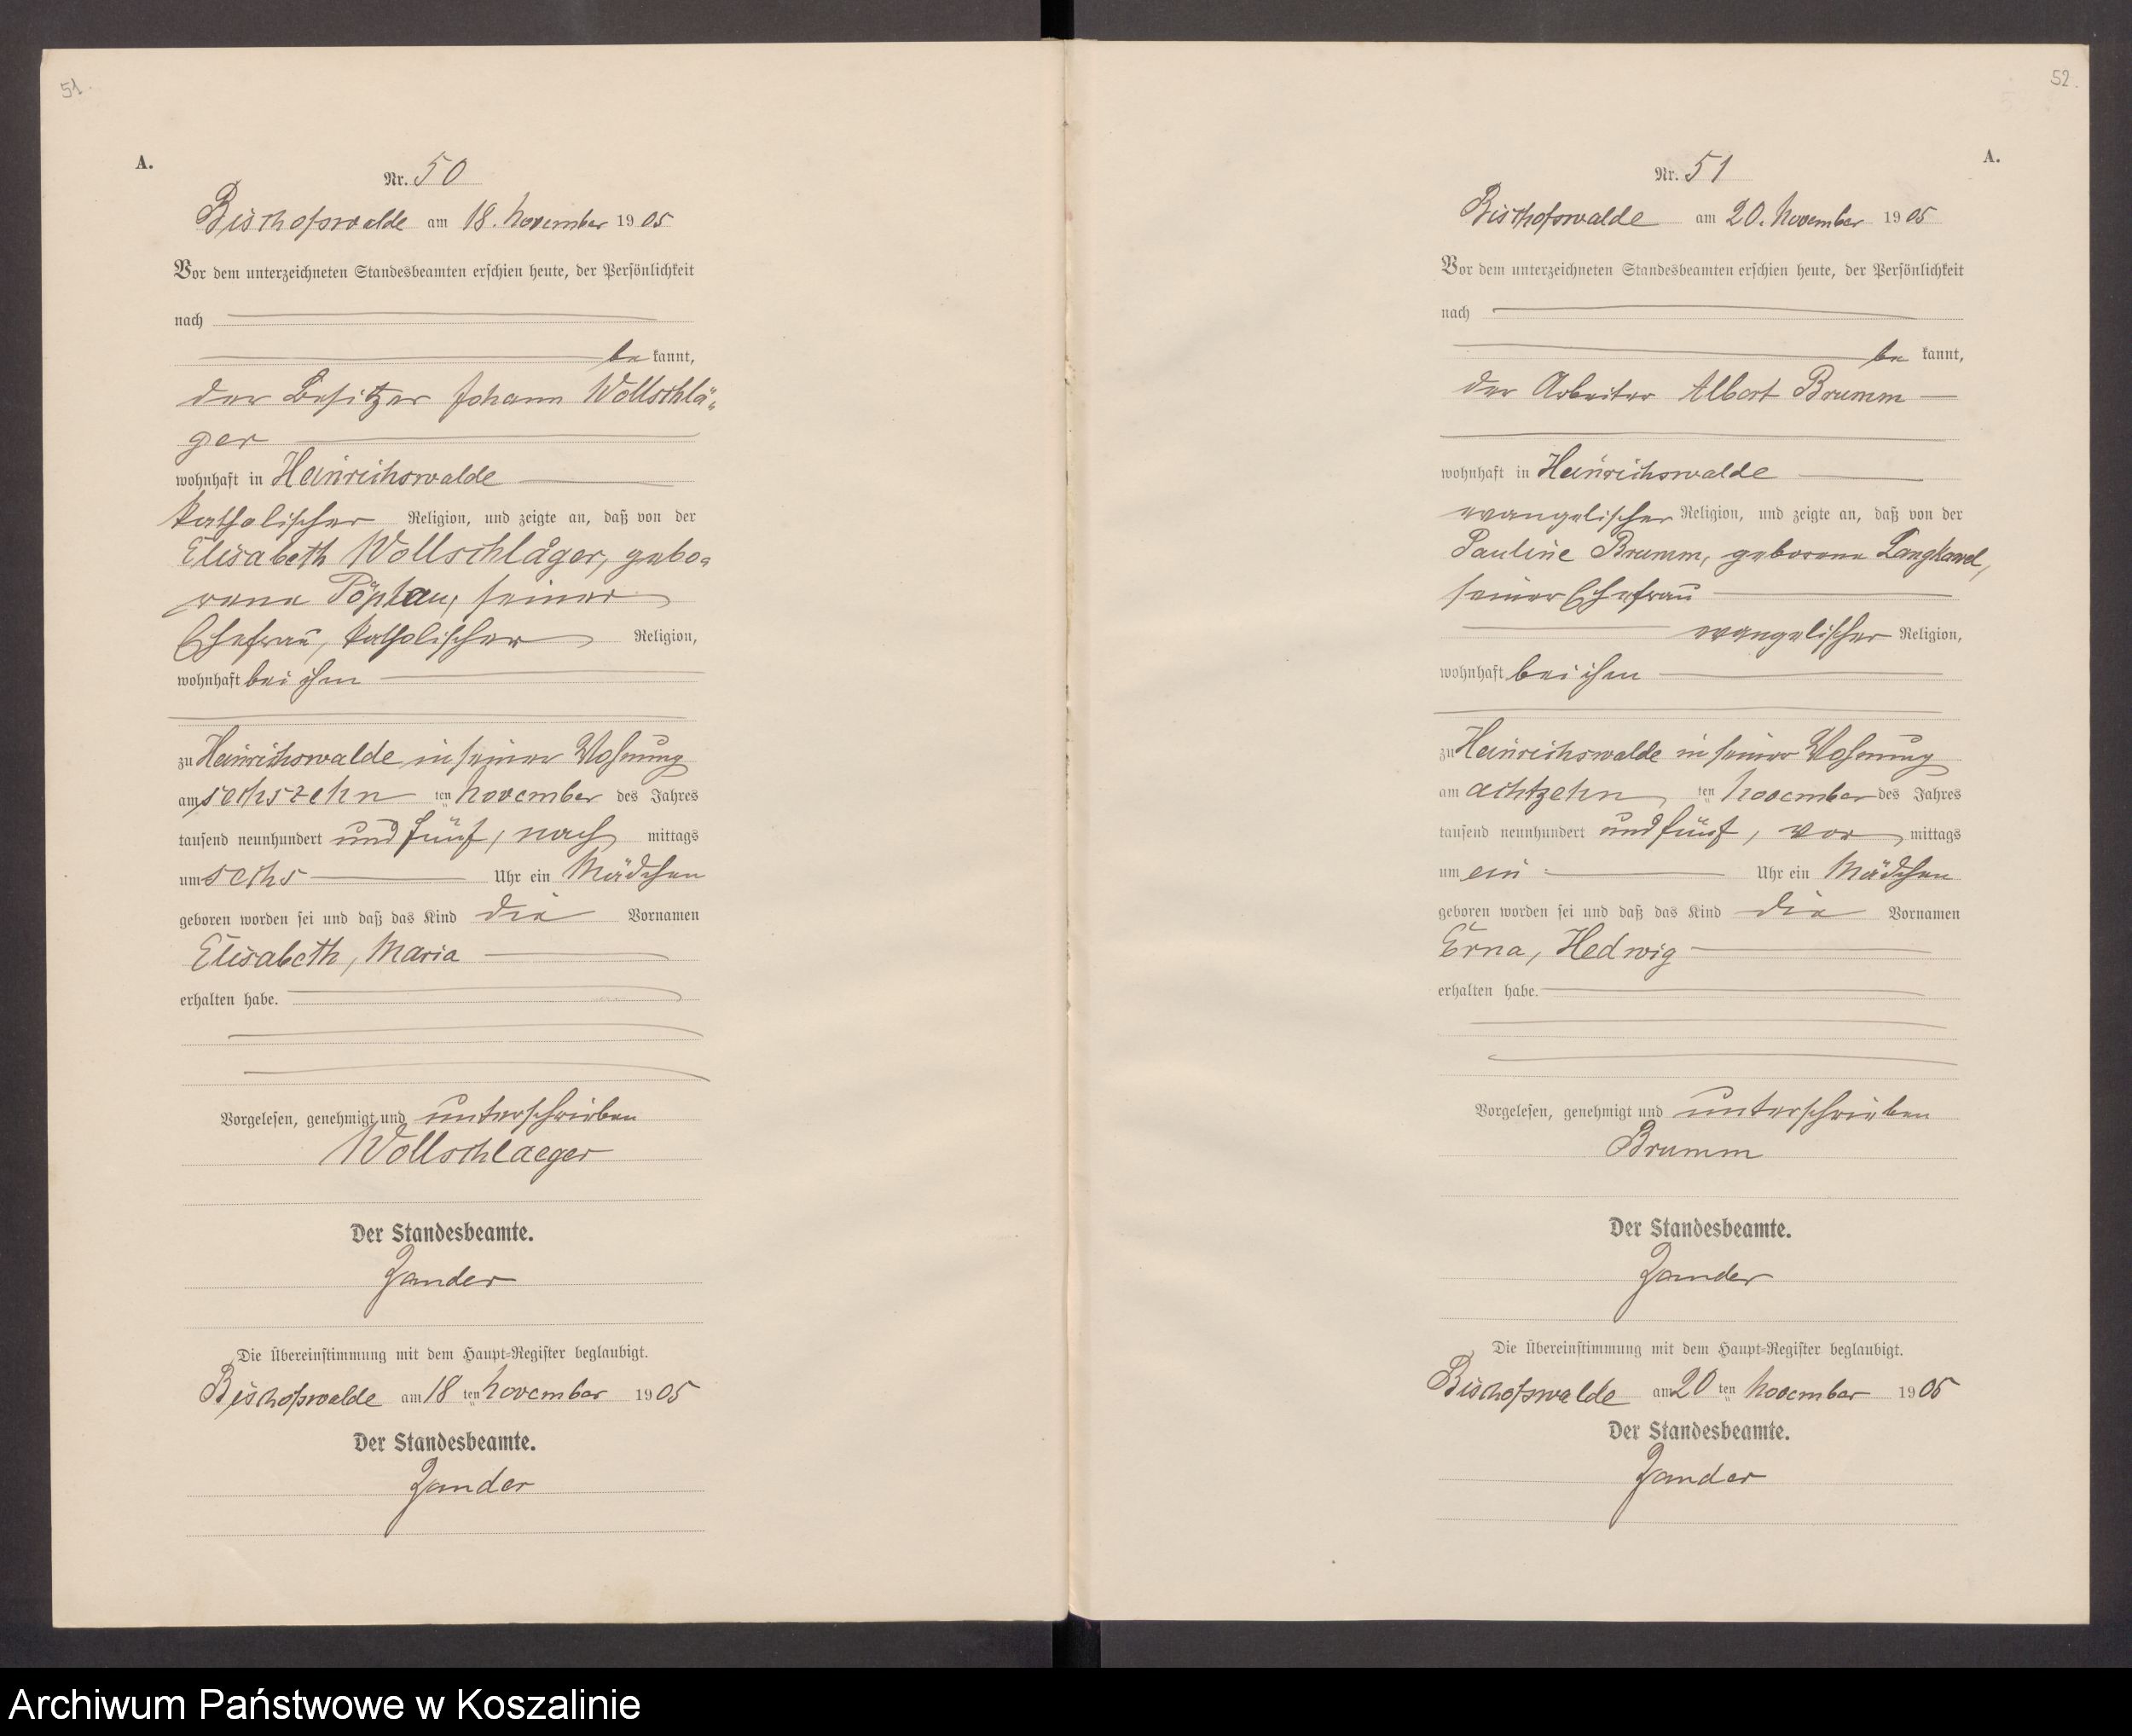 51.
A.
Nr. 50
Bischofswalde am 18. November 1905
Vor dem unterzeichneten Standesbeamten erschien heute, der Persönlichkeit
nach
be kannt,
der Besitzer Johann Wollschlä„
ger
wohnhaft in Heinrichswalde
katholischer Religion, und zeigte an, daß von der
Elisabeth Wollschläger, gebo„
rene Pöplau, seiner
Ehefrau, katholischer Religion,
wohnhaft bei ihm
zu Heinrichswalde in seiner Wohnung
am sechszehn ten November des Jahres
tausend neunhundert und fünf, nach mittags
um sechs Uhr ein Mädchen
geboren worden sei und daß das Kind die Vornamen
Elisabeth, Maria
erhalten habe.
Vorgelesen, genehmigt und unterschrieben
Wollschlaeger
Der Standesbeamte.
Zander
Die Übereinstimmung mit dem Haupt-Register beglaubigt.
Bischofswalde am 18 ten November 1905
Der Standesbeamte.
Zander
52.
A.
Nr. 51
Bischofswalde am 20. November 1905
Vor dem unterzeichneten Standesbeamten erschien heute, der Persönlichkeit
nach
be kannt,
der Arbeiter Albert Brumm
wohnhaft in Heinrichswalde
evangelischer Religion, und zeigte an, daß von der
Pauline Brumm, geborene Langkavel,
seiner Ehefrau
evangelischer Religion,
wohnhaft bei ihm
zu Heinrichswalde in seiner Wohnung
am achtzehn ten November des Jahres
tausend neunhundert und fünf, vor mittags
um ein Uhr ein Mädchen
geboren worden sei und daß das Kind die Vornamen
Erna, Hedwig
erhalten habe.
Vorgelesen, genehmigt und unterschrieben
Brumm
Der Standesbeamte.
Zander
Die Übereinstimmung mit dem Haupt-Register beglaubigt.
Bischofswalde am 20 ten November 1905
Der Standesbeamte.
Zander
Archiwum Państwowe w Koszalinie